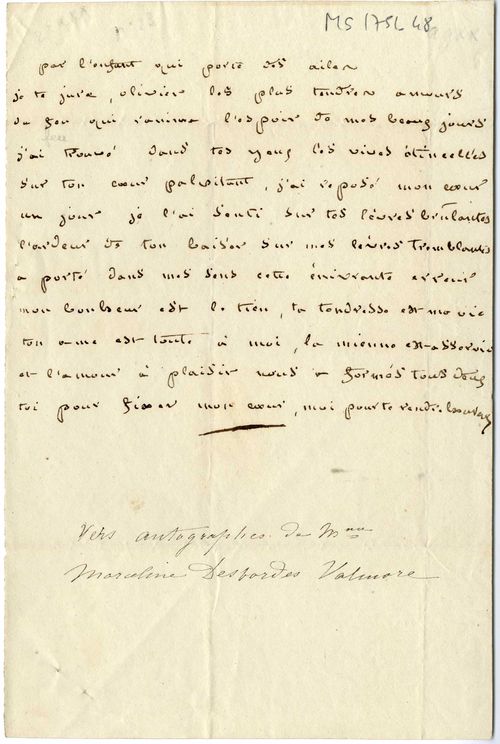 MS 1751 48
par l'enfant qui porte des ailes
je te jure, olivier les plus tendres amours
du feu qui ranime l'espoir de mes beaux jours
j'ai trouvé dans tes yeux les vives étincelles
sur ton cœur palpitant, j'ai reposé mon cœur
un jour je l'ai senti sur tes lèvres brulantes
l'ardeur de ton baiser sur mes lèvres tremblantes
a porté dans mes sens cette énivrante erreur
mon bonheur est le tien, ta tendresse est ma vie
ton ame est toute à moi, la mienne est asservie
et l'amour à plaisir nous a formés tous deux
toi pour fixer mon cœur, moi pour te rendre heureux
Vers autographes de Mme
Marceline Desbordes Valmore